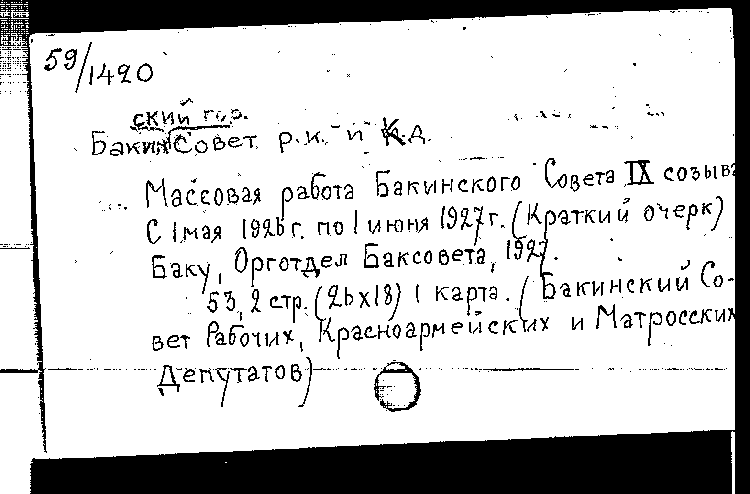 59/1420
ский гор.
Бакин Совет р.к. и К.д.
Массовая работа Бакинского Совета IX созыва
С 1 мая 1926 г. по 1 июня 1927 г. (Краткий очерк)
Баку, Орготдел Баксовета, 1927.
53, 2 стр. (26х18) 1 карта. (Бакинский Со-
вет Рабочих, Красноармейских и Матросских
Депутатов)